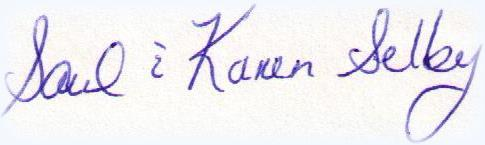 Saul & Karen Selby